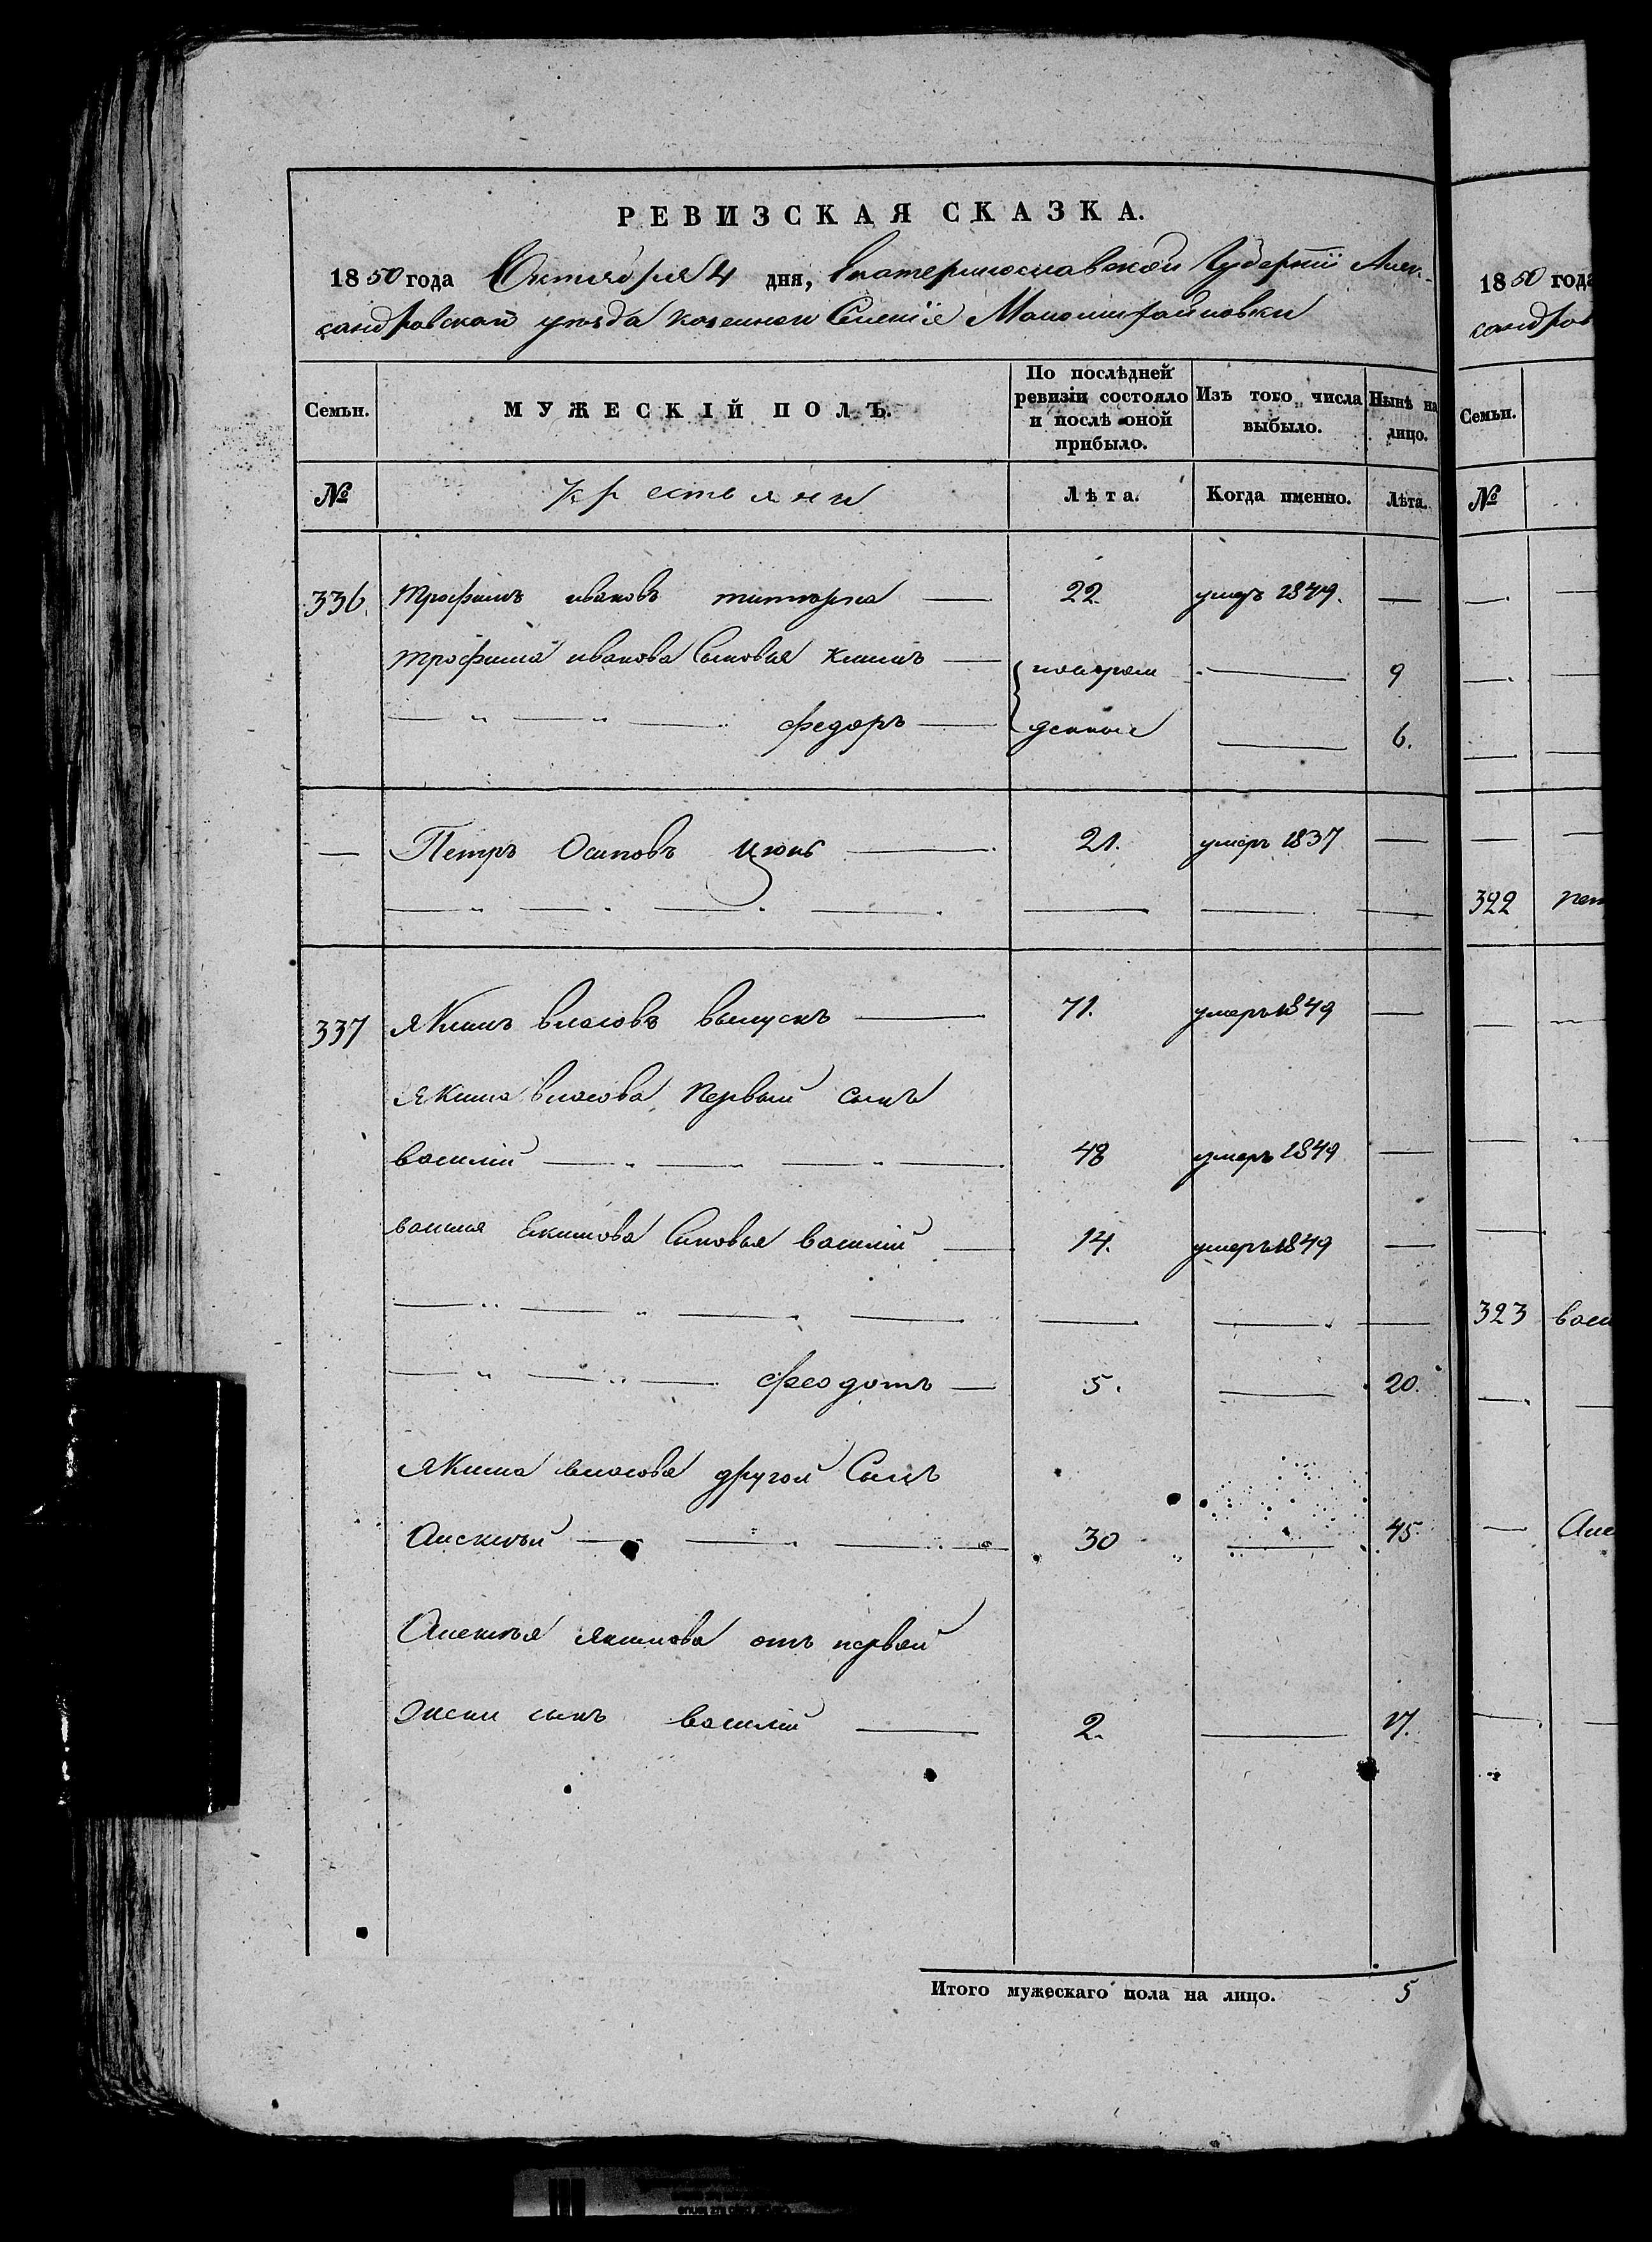 РЕВИЗСКАЯ СКАЗКА.
1850 года Октября 4 дня, Екатеринославской Губернїи Алек-
сандровскаго уѣзда казенного Селенїя Маломихайловки
Семьи. МУЖЕСКІЙ ПОЛЪ. По послѣдней ревизіи состояло и послѣ оной прибыло. Изъ того числа выбыло. Нынѣ на лицо.
№ крестьяни Лѣта. Когда именно. Лѣта.
336. трофимъ ивановъ — 22. умеръ 1849. —
трофима иванова Сыновья климъ — новорож — 9
— " — " — федоръ — денные — 6.
— Петръ Осиповъ Цюпь — 21. умеръ 1837 —
337 якимъ власовъ выпускъ — 71. умеръ 1849 —
якима власова первый сынъ
василий — " — — " — 48 умеръ 1849 —
василя Екимова Сыновья василий — 14. умеръ 1849 —
— " — " — феодотъ — 5. — 20.
якима власова другой Сынъ
Алексѣй — 30 — 45.
Алексѣя якимова отъ первой
жены сынъ василий — 2. — 17.
Итого мужескаго пола на лицо. 5
1850 года
сандров
Семьи.
№
322
323 васи
Але